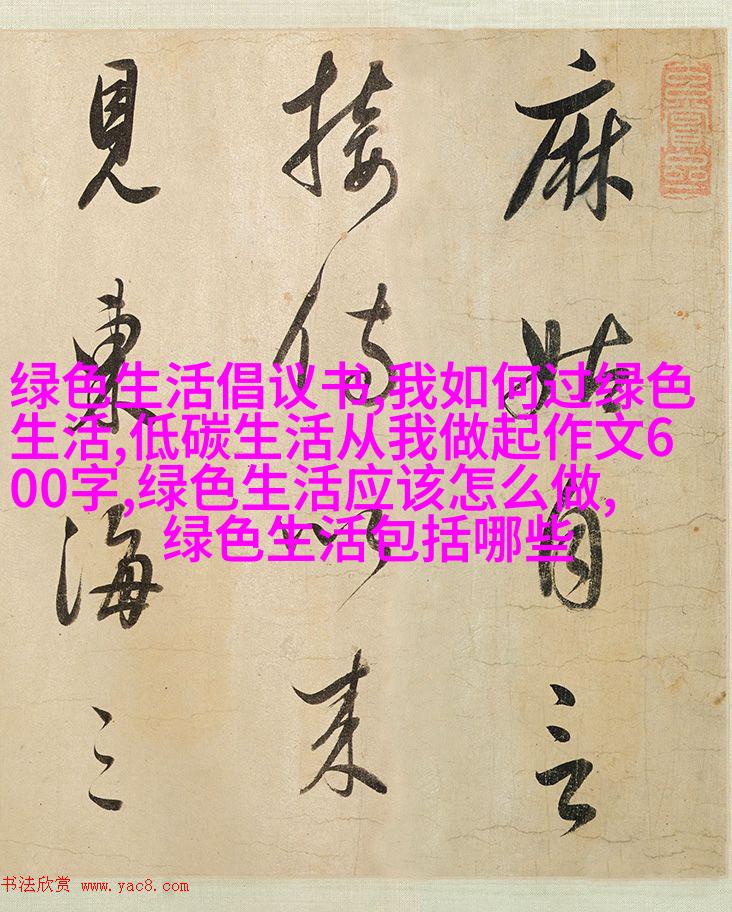 麻姑自言
接侍以来
見東海三
绿色生活倡议书,我如何过绿色
生活,低碳生活从我做起作文6
00字,绿色生活应该怎么做,
绿色生活包括哪些
书法欣赏 www.yac8.com